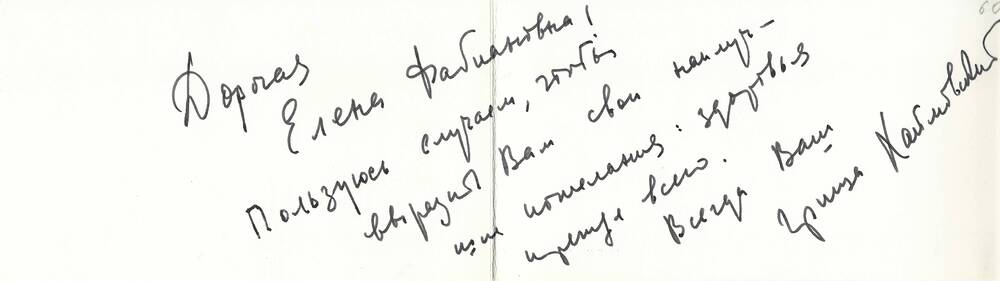 Дорогая
Елена Фабиановна!
Пользуюсь случаем, чтобы
выразить Вам свои наилуч-
шие пожелания: здоровья
прежде всего.
Всегда Ваш
Гриша Хаймовский
60